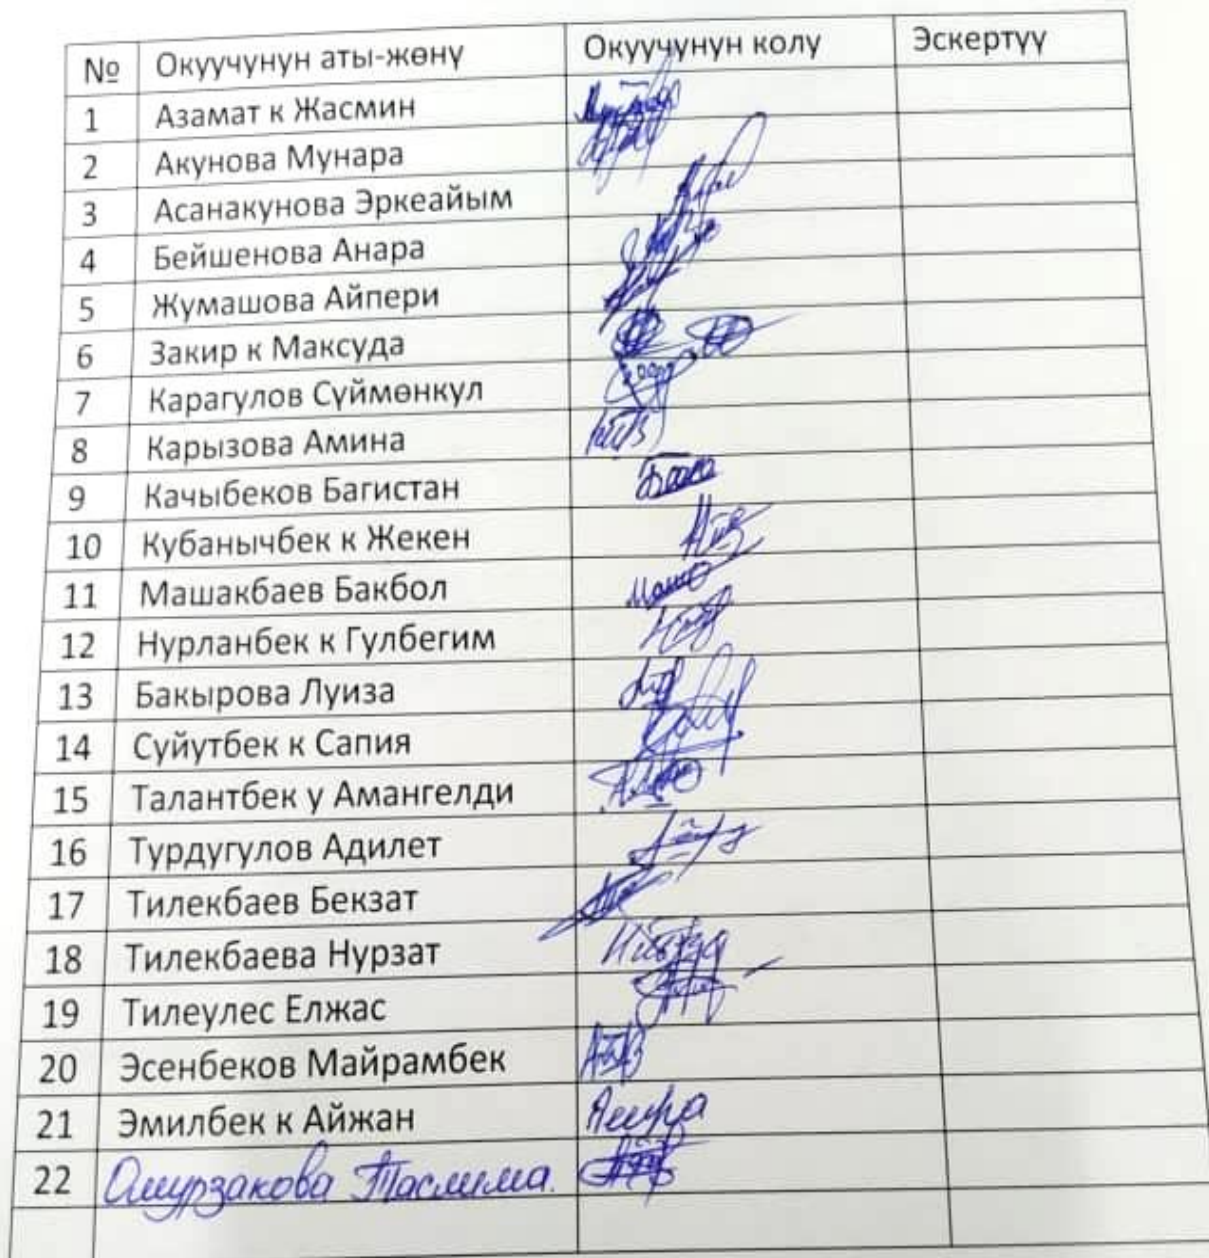 № Окуучунун аты-жөнү Окуучунун колу Эскертүү
1 Азамат к Жасмин
2 Акунова Мунара
3 Асанакунова Эркеайым
4 Бейшенова Анара
5 Жумашова Айпери
6 Закир к Максуда
7 Карагулов Сүймөнкул
8 Карызова Амина
9 Качыбеков Багистан
10 Кубанычбек к Жекен
11 Машакбаев Бакбол
12 Нурланбек к Гулбегим
13 Бакырова Луиза
14 Суйутбек к Сапия
15 Талантбек у Амангелди
16 Турдугулов Адилет
17 Тилекбаев Бекзат
18 Тилекбаева Нурзат
19 Тилеулес Елжас
20 Эсенбеков Майрамбек
21 Эмилбек к Айжан
22 Омурзакова Таслима.